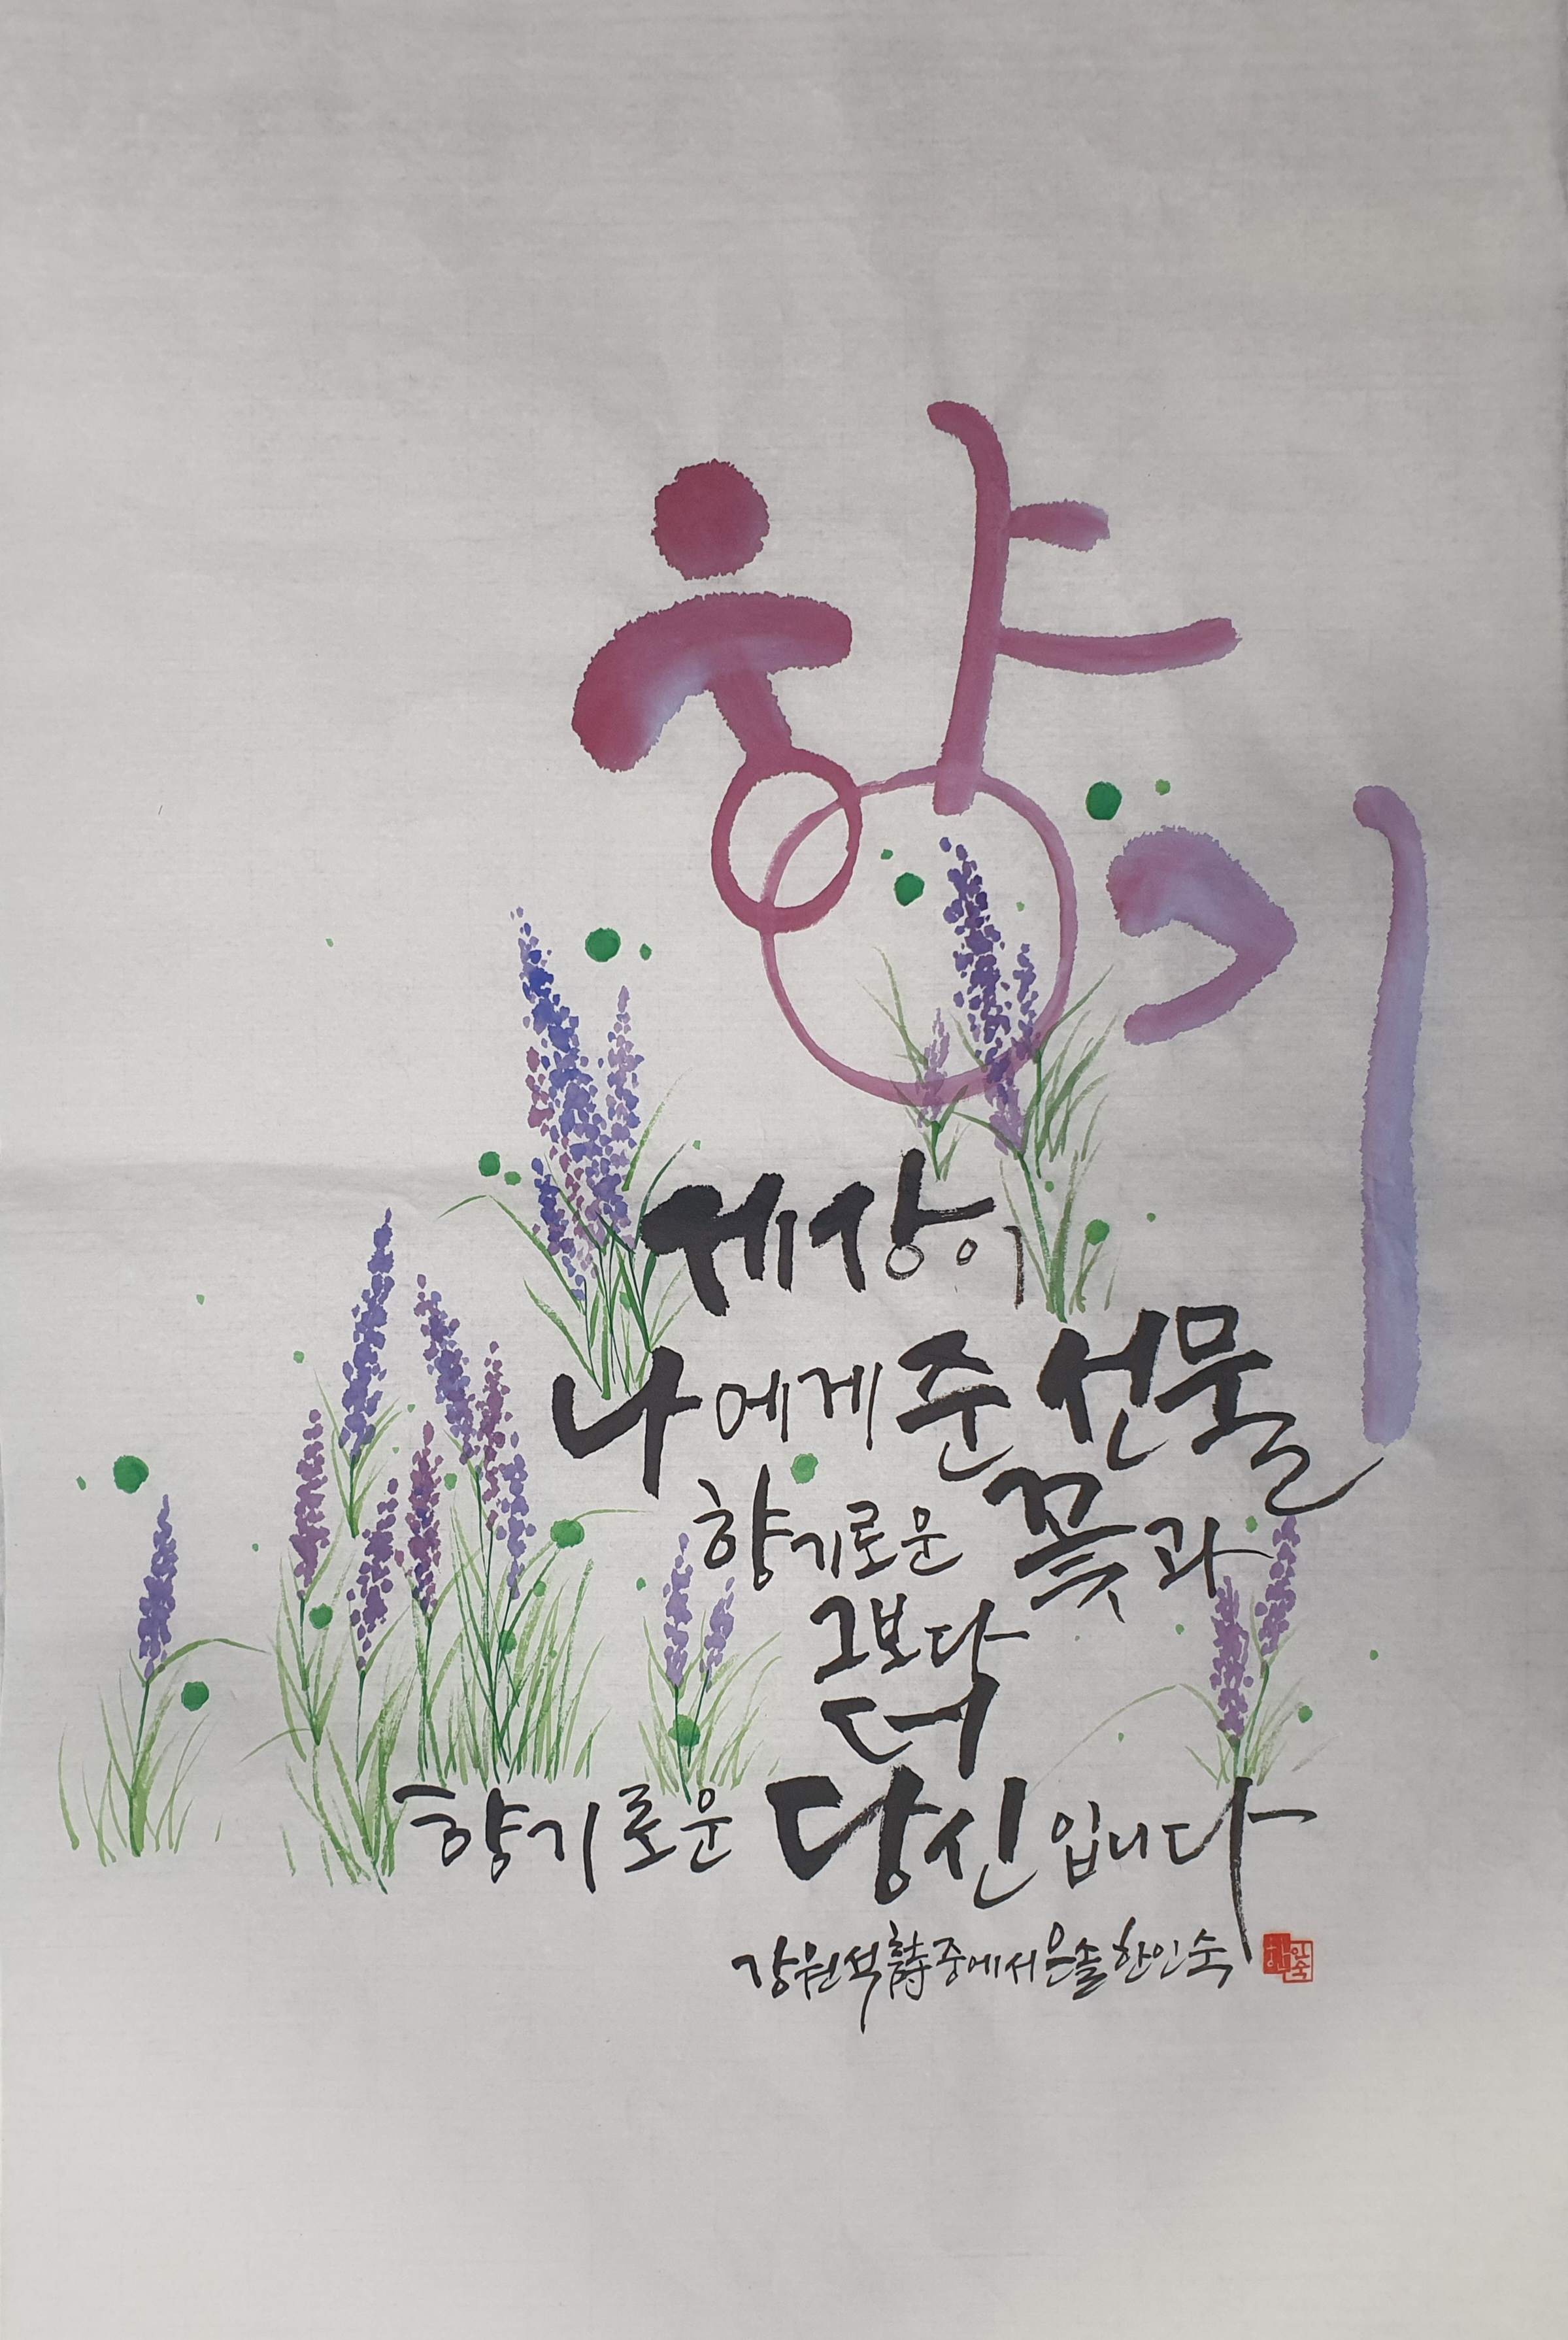 향기
세상이
나에게 준 선물
향기로운 꽃과
그보다
더
향기로운 당신입니다
강원석 詩 중에서 은솔 한인숙
한인숙